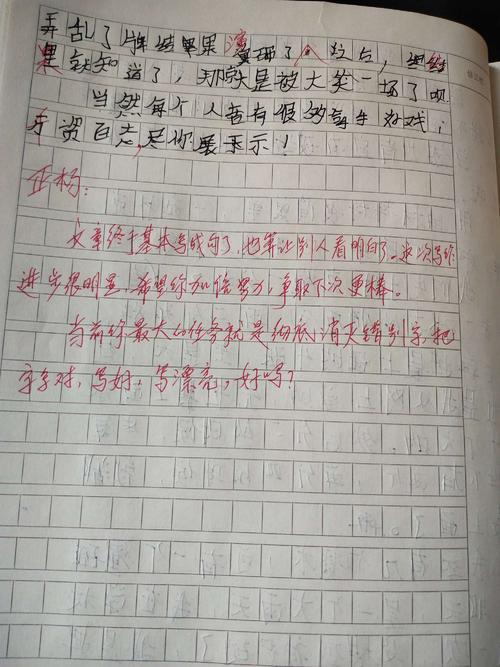 弄乱了牌结果演砸了
果就知道了，那就是被大笑一场了呗
当然每个人者有很多拿手好戏，
手资百态，尽你展示！
正杨：
文章终于基本写成句了，也算让别人看明白了。这次写作
进步很明显，希望你加倍努力，争取下次更棒。
当前你最大的任务就是彻底消灭错别字，把
字写对，写好，写漂亮，好吗？